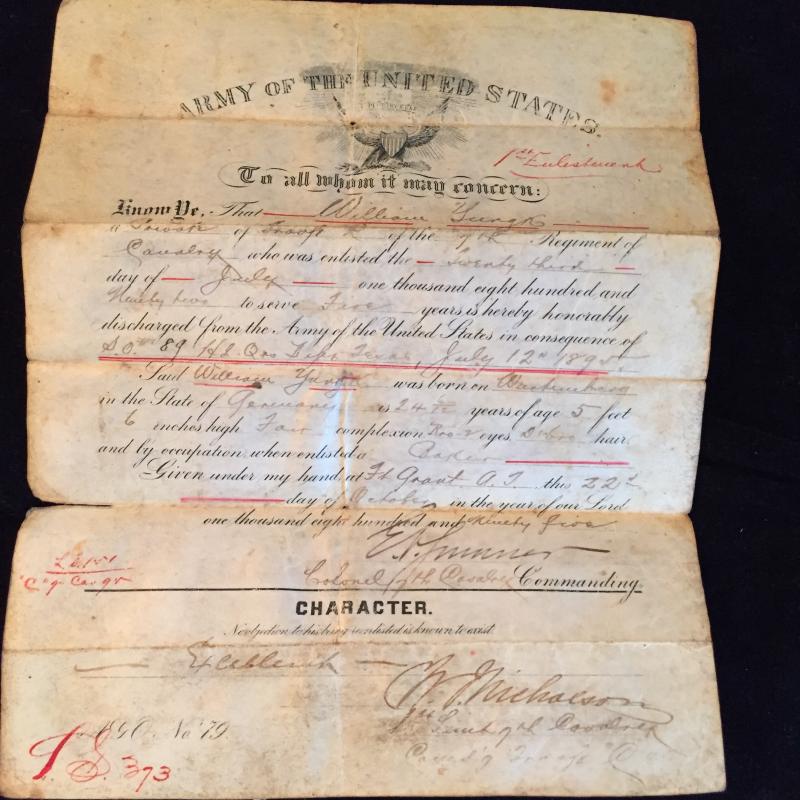 ARMY OF THE UNITED STATES.
1st Enlistment
To all whom it may concern:
Know Ye, That William Jungk
a Private of Troop of the 7th Regiment of
Cavalry who was enlisted the Twenty third
day of July one thousand eight hundred and
Ninety two to serve Five years is hereby honorably
discharged from the Army of the United States in consequence of
S.O. 89 Hd. Qrs Dept Texas, July 12" 1895
Said William was born in
in the State of Germany is 24 years of age 5 feet
6 inches high Fair complexion eyes hair
and by occupation when enlisted a Baker
Given under my hand at Ft Grant A.T. this 22d
day of October in the year of our Lord
one thousand eight hundred and Ninety five
E. V. Sumner
Colonel 7th Cavalry Commanding.
"C" 7" Cav 95
CHARACTER.
No objection to his being reenlisted is known to exist.
Excellent
W. J. Nicholson
1st Lieut 7th Cavalry
Comd'g Troop "C"
A.G.O. No. 79.
S. 373